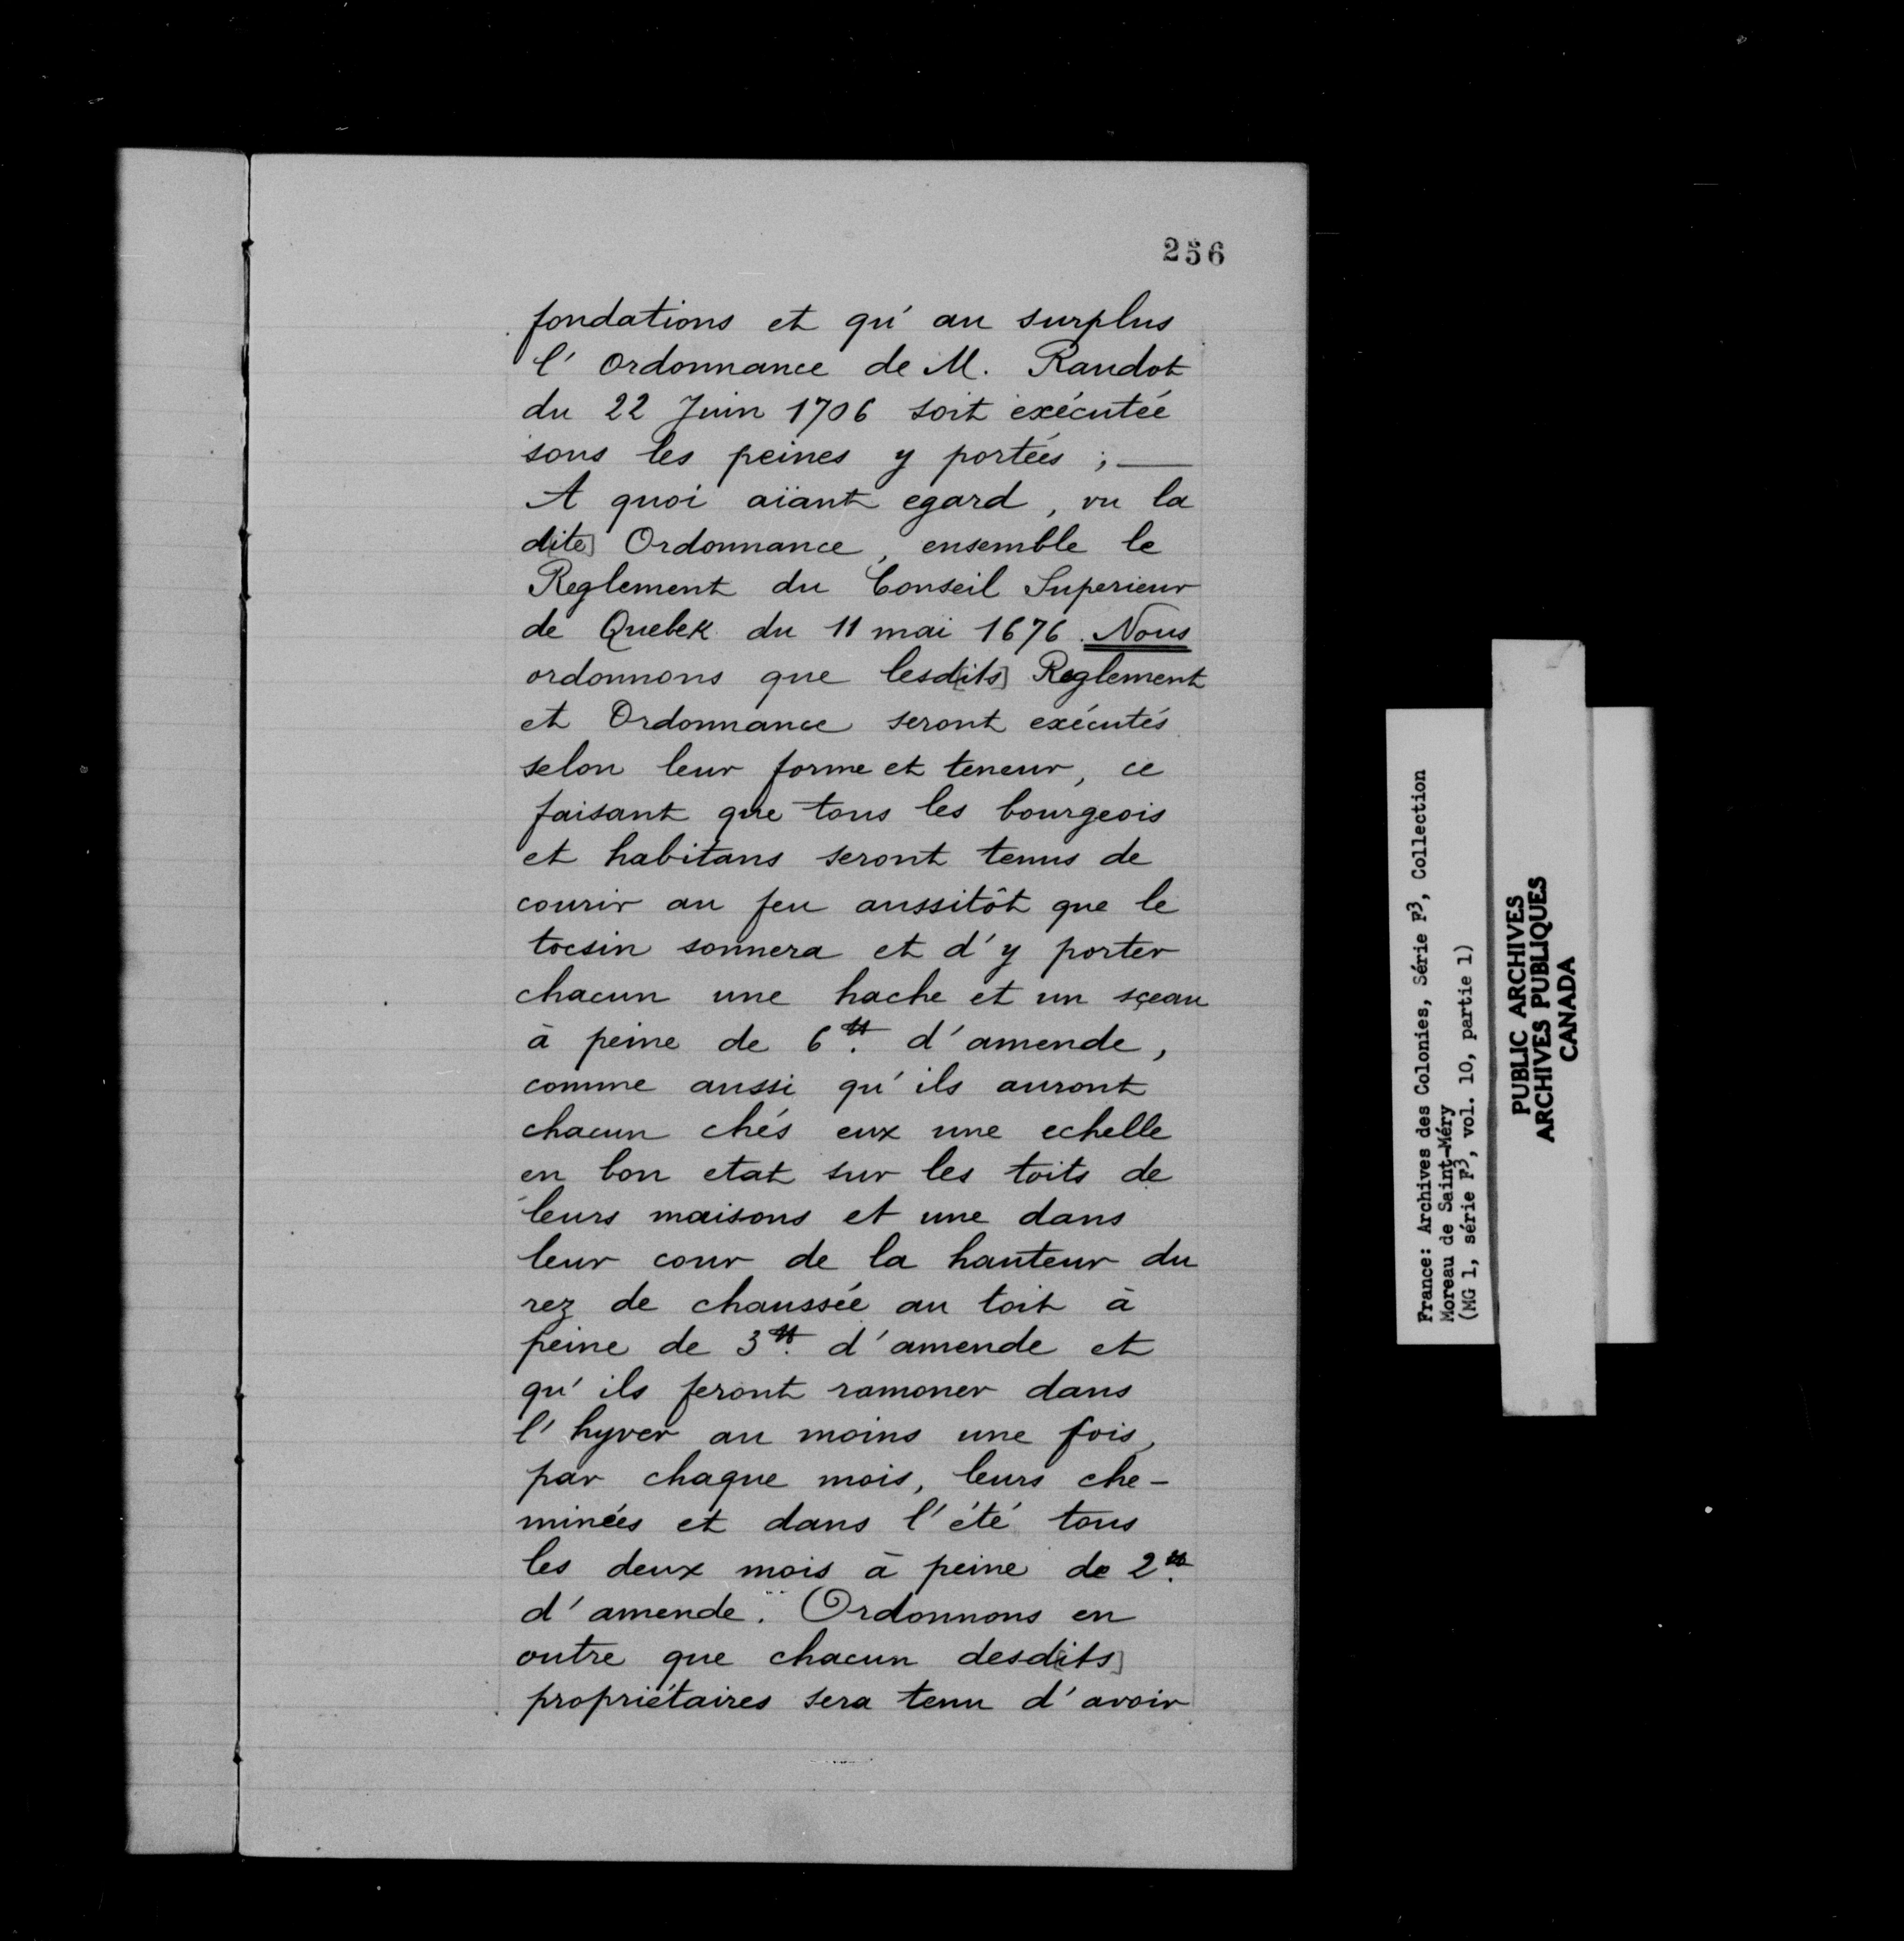 256
fondations et qu'au surplus
l'ordonnance de M. Raudot
du 22 Juin 1706 soit exécutée
sous les peines y portées ; —
A quoi aïant egard, vu la
d[ite] Ordonnance, ensemble le
Reglement du Conseil Superieur
de Quebek du 11 mai 1676. Nous
ordonnons que lesd[its] Reglement
et Ordonnance seront exécutés
selon leur forme et teneur, ce
faisant que tous les bourgeois
et habitans seront tenus de
courir au feu aussitôt que le
tocsin sonnera et d'y porter
chacun une hache et un sçeau
à peine de 6tt. d'amende,
comme aussi qu'ils auront
chacun chés eux une echelle
en bon etat sur les toits de
leurs maisons et une dans
leur cour de la hauteur du
rez de chaussée au toit à
peine de 3tt. d'amende et
qu'ils feront ramoner dans
l'hyver au moins une fois,
par chaque mois, leurs che-
minées et dans l'été tous
les deux mois à peine de 2tt.
d'amende. Ordonnons en
outre que chacun desd[its]
propriétaires sera tenu d'avoir
France: Archives des Colonies, Série F3, Collection
Moreau de Saint-Méry
(MG 1, série F3, vol. 10, partie 1)
PUBLIC ARCHIVES
ARCHIVES PUBLIQUES
CANADA